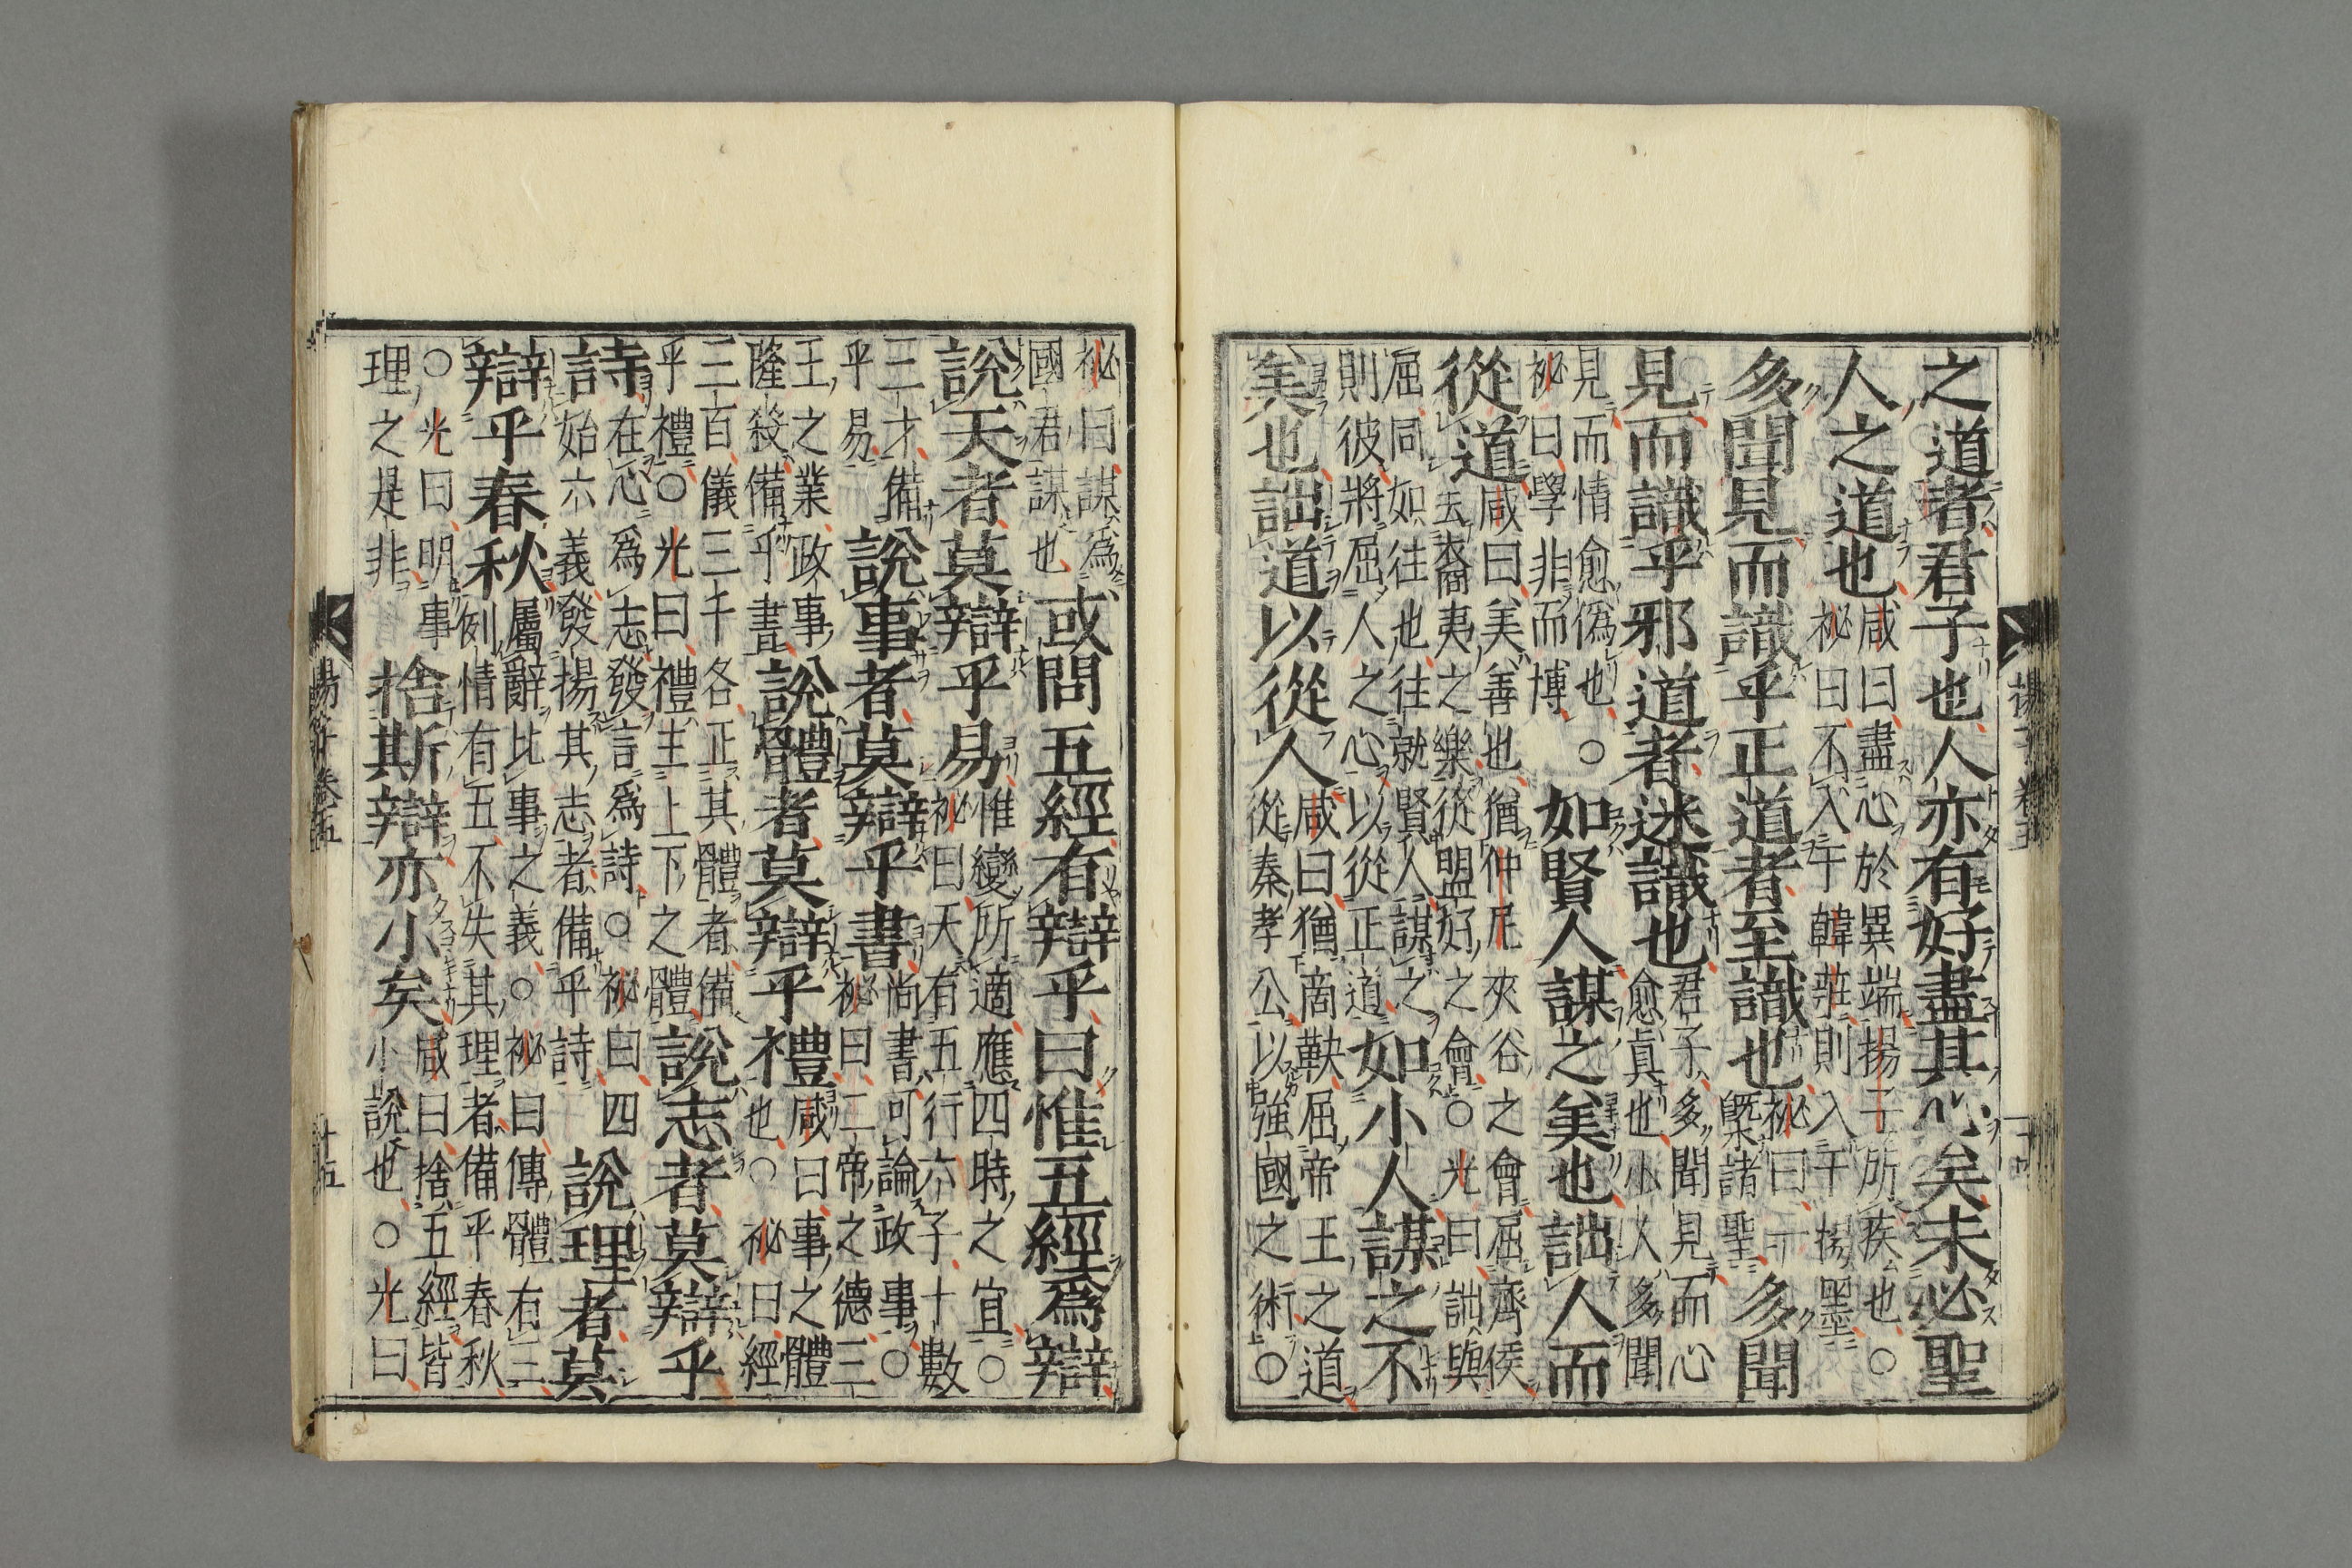 之道者君子也人亦有好盡其心矣未必聖
人之道也
咸曰盡心於異端揚子所疾也○
祕曰不入于韓莊則入于揚墨
多聞見而識乎正道者至識也
祕曰
槩諸聖
多聞
見而識乎邪道者迷識也
君子多聞見而心
愈眞也小人多聞
見而情愈僞也○
祕曰學非而博
如賢人謀之美也詘人而
從道
咸曰美善也猶仲尼夾谷之會屈齊侯
去裔夷之樂從盟好之會○光曰詘與
屈同如往也往就賢人謀之
則彼將屈人之心以從正道
如小人謀之不
美也詘道以從人
咸曰猶商鞅屈帝王之道
從秦孝公以強國之術○
祕曰謀爲
國君謀也
或問五經有辯乎曰惟五經爲辯
說天者莫辯乎易
惟變所適應四時之宜○
祕曰天有五行六子十數
三才備
乎易
說事者莫辯乎書
尚書可論政事○
祕曰二帝之德三
王之業政事
隆殺備乎書
說體者莫辯乎禮
咸曰事之體
也○祕曰經
三百儀三千各正其體者備
乎禮○光曰禮主上下之體
說志者莫辯乎
詩
在心爲志發言爲詩○祕曰四
始六義發揚其志者備乎詩
說理者莫
辯乎春秋
屬辭比事之義○祕曰傳體有三
例情有五不失其理者備乎春秋
○光曰明事
理之是非
捨斯辯亦小矣
咸曰捨五經皆
小說也○光曰
揚子卷五
十五